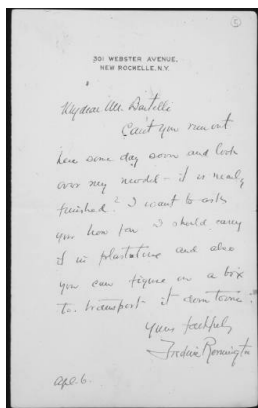 5
301 WEBSTER AVENUE,
NEW ROCHELLE, N.Y.
My dear Mr. Bertelli
Can't you run out
here some day soon and look
over my model - it is nearly
finished? I want to ask
you how far I should carry
it in plastaline and also
you can figure on a box
to transport it down town.
Yours faithfully
Frederic Remington
Apl. 6.